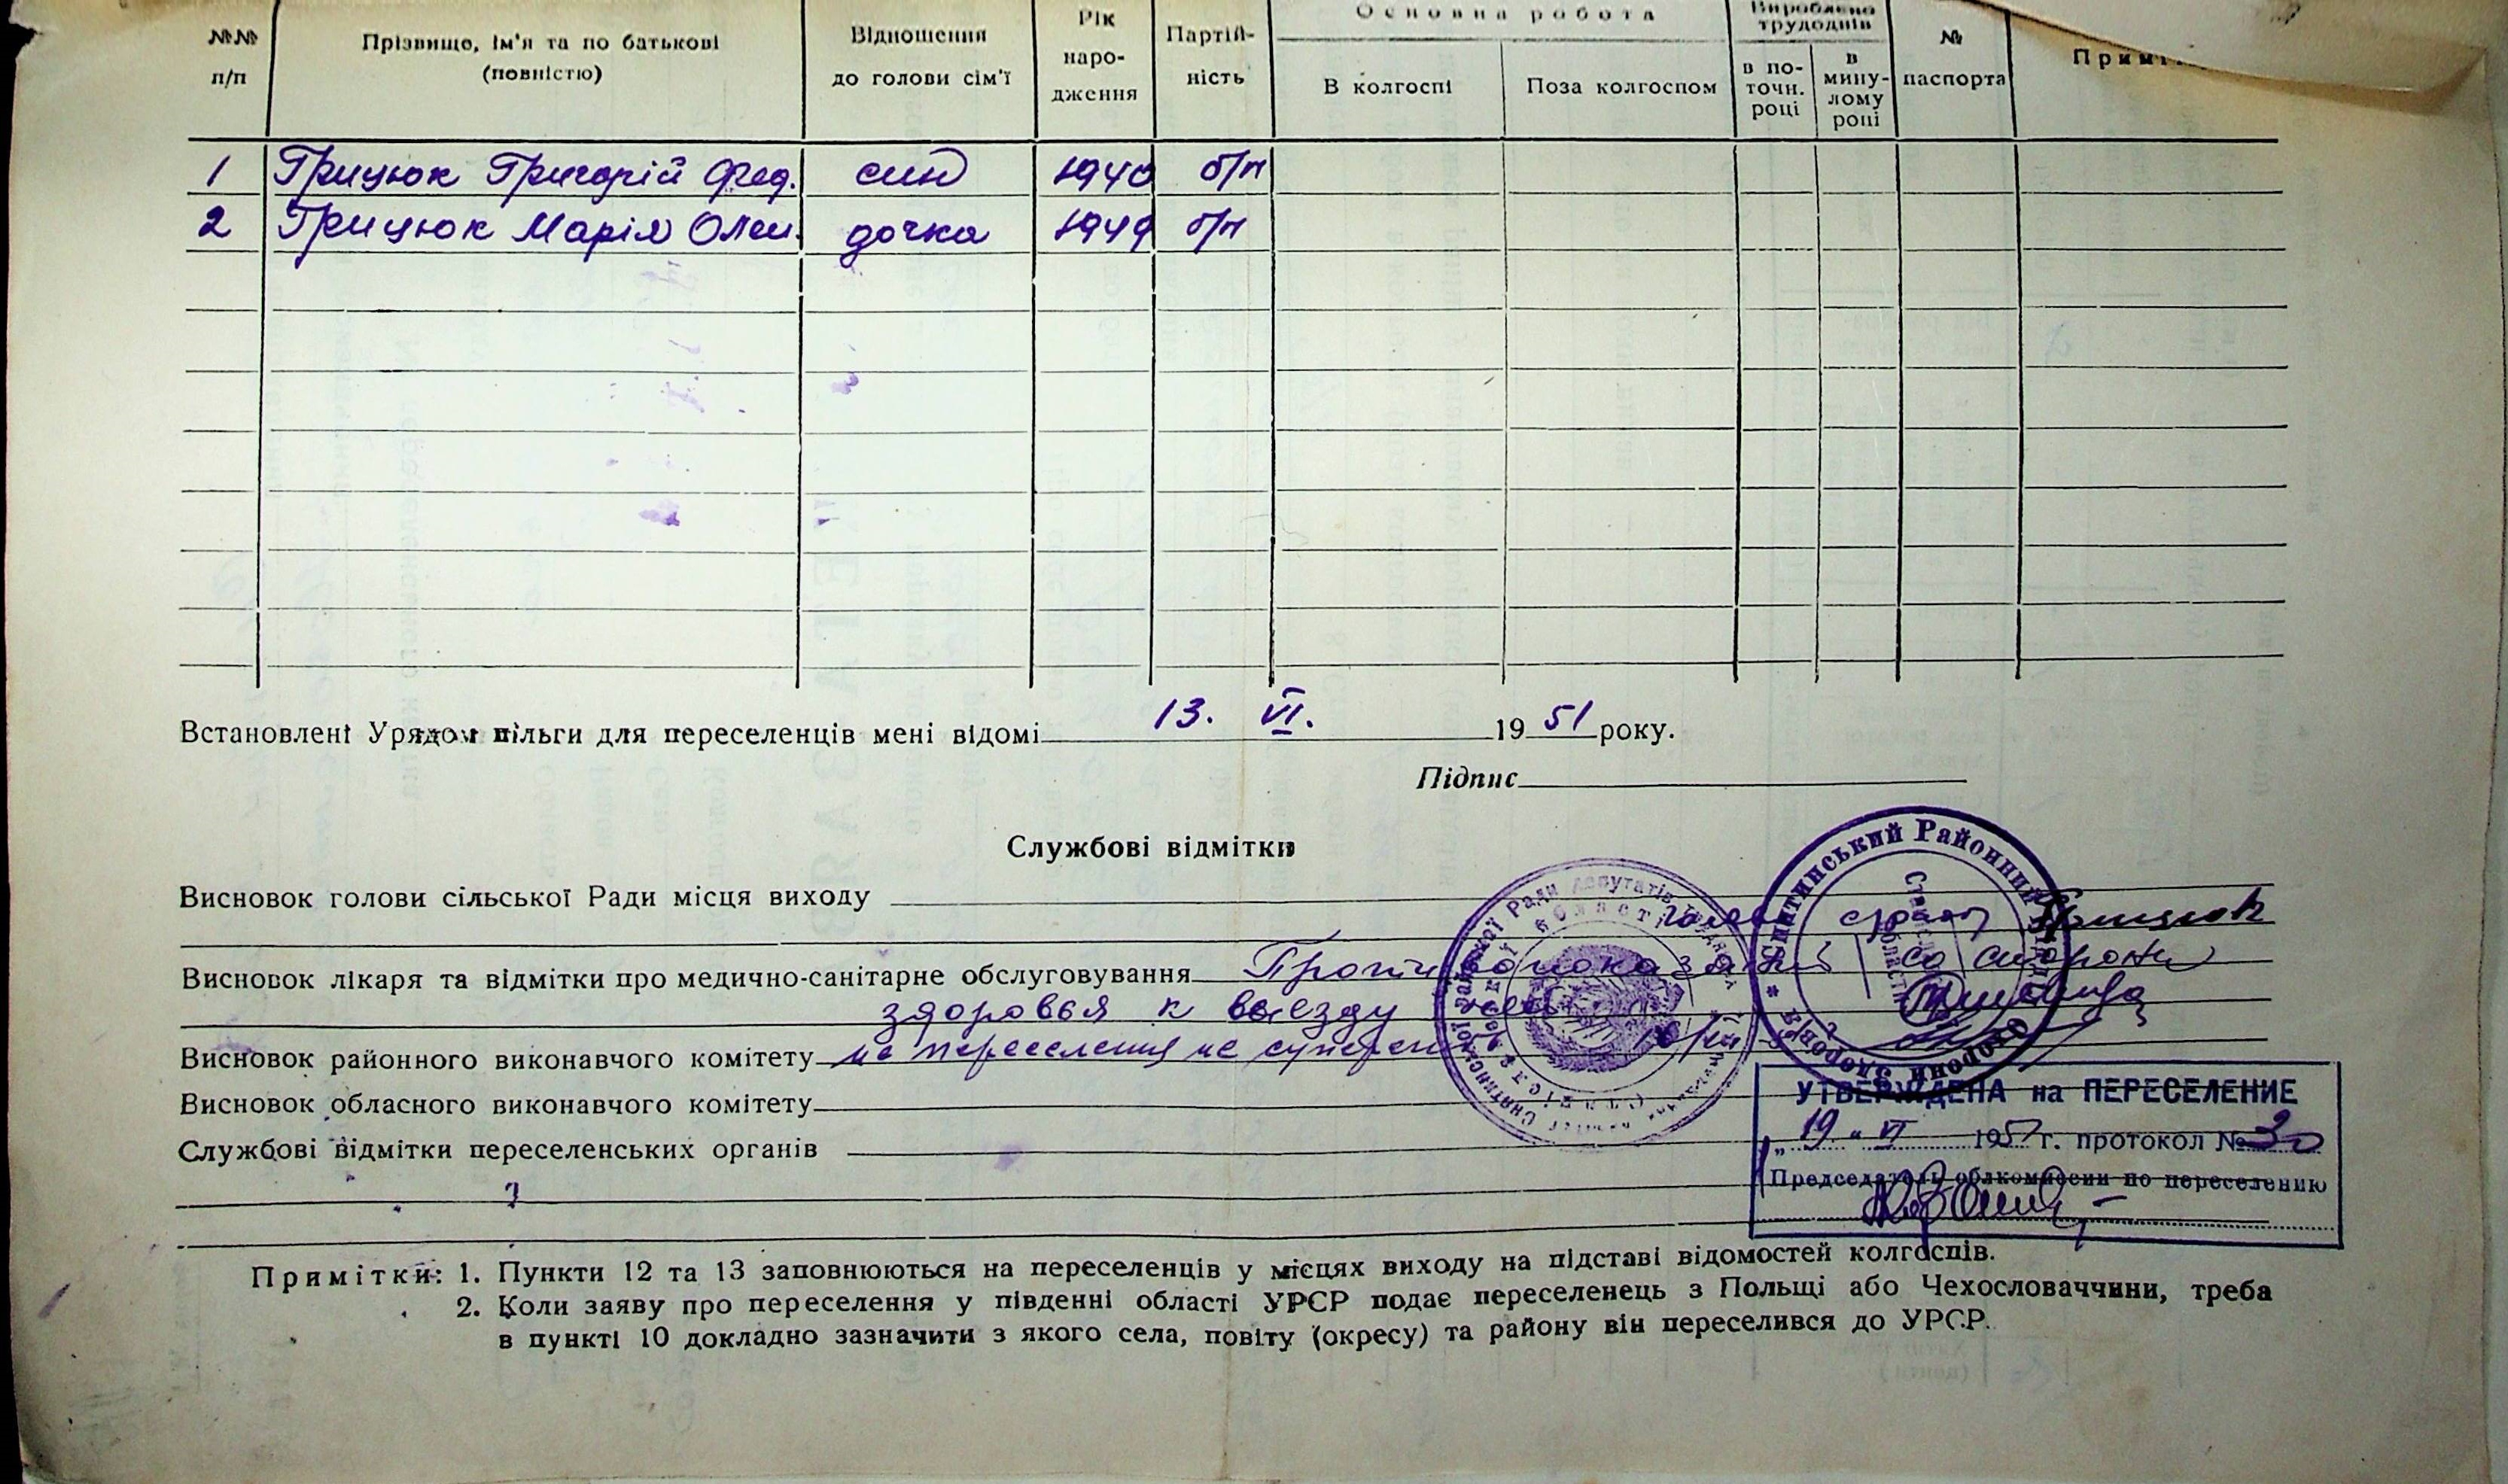 №№ п/п
Прізвище, ім'я та по батькові (повністю)
Відношення до голови сім'ї
Рік народження
Партій-
ність
Основна робота
В колгоспі
Поза колгоспом
Вироблено трудоднів
в по-
точн.
році
в
мину-
лому
році
№ паспорта
1 Грицюк Григорій Фед. син 1940 б/п
2 Грицюк Марія Олек. дочка 1949 б/п
Встановлені Урядом пільги для переселенців мені відомі 13. VI. 1951 року.
Підпис
Службові відмітки
Висновок голови сільської Ради місця виходу
Висновок лікаря та відмітки про медично-санітарне обслуговування Противопоказаний со стороны
здоровья к выезду нет
Висновок районного виконавчого комітету не переселення не суперечить
Висновок обласного виконавчого комітету
Службові відмітки переселенських органів
Снятинський Районний Відділ Охорони Здоров'я
УТВЕРЖДЕНА на ПЕРЕСЕЛЕНИЕ
„19" VI 1951 г. протокол № 30
Председатель облкомиссии по переселению
Примітки: 1. Пункти 12 та 13 заповнюються на переселенців у місцях виходу на підставі відомостей колгоспів.
2. Коли заяву про переселення у південні області УРСР подає переселенець з Польщі або Чехословаччини, треба
в пункті 10 докладно зазначити з якого села, повіту (окресу) та району він переселився до УРСР.